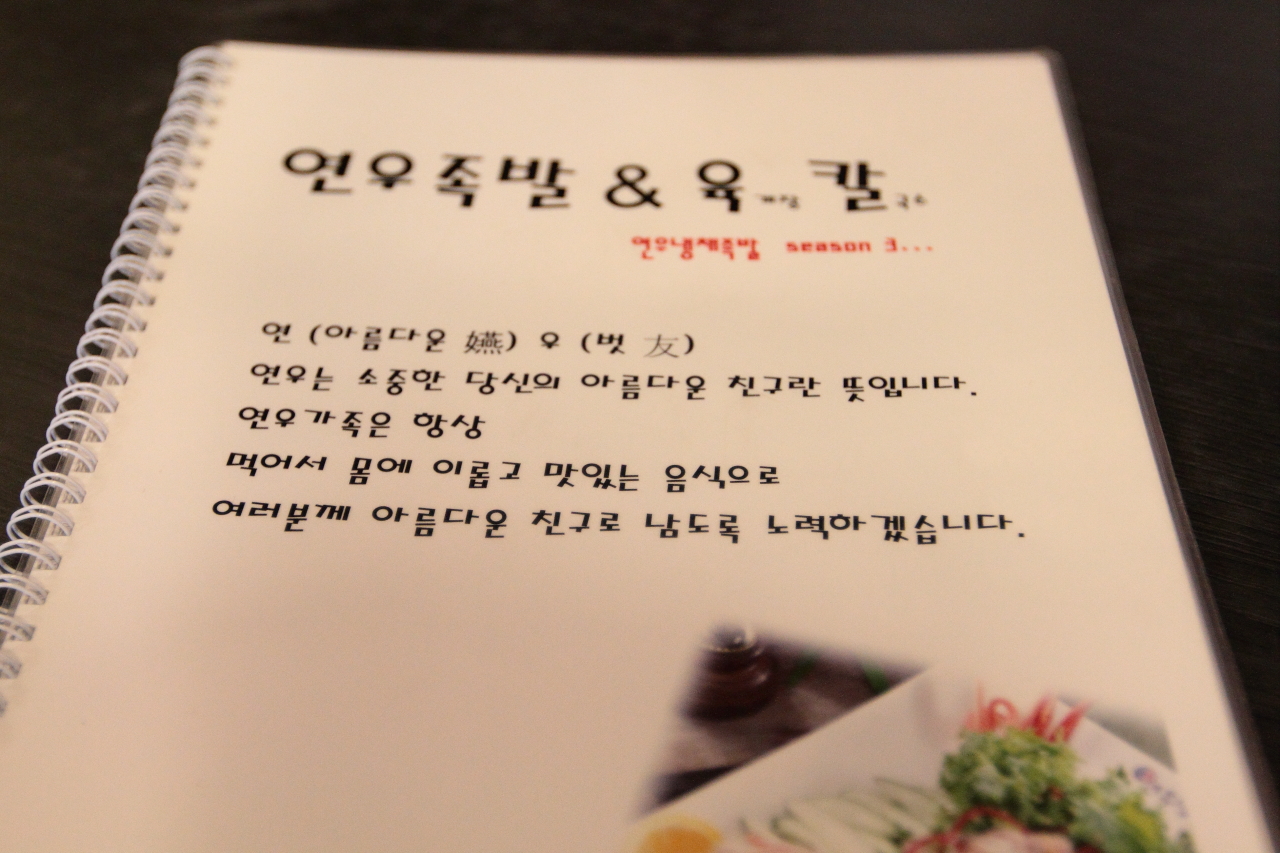 연우족발 & 육개장 칼국수
연우냉채족발 season 3...
연 (아름다운 嬿) 우 (벗 友)
연우는 소중한 당신의 아름다운 친구란 뜻입니다.
연우가족은 항상
먹어서 몸에 이롭고 맛있는 음식으로
여러분께 아름다운 친구로 남도록 노력하겠습니다.